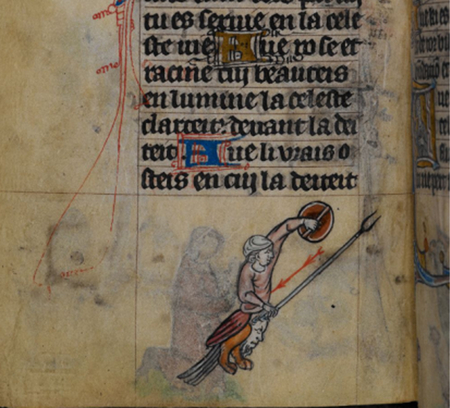 tu es seruie en la cele
ste uie Aue rose et
racine cuj beauters
en lumine la celeste
clarteit: deuant la dei
teit Aue li urais o
steis en cuj la deuteit